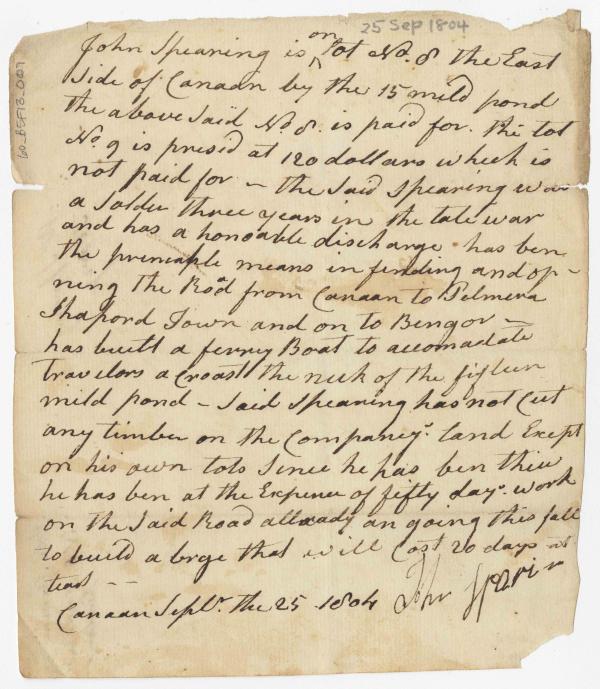 25 Sep 1804
60_BSF13_007
John Spearing is on Lot No. 8 the East
Side of Canaan by the 15 mild pond
the above Said No 8. is paid for. the Lot
No. 9 is presid at 120 dollars wheck is
not paid for - the Said Spearing was
a Solder three years in the late war
and has a honoable discharge has ben
the princaple means in finding and op-
ning the Road from Canaan to Pelmera
Shaford Town and on to Bengor -
has built a ferrey Boat to accomadate
travelors acroast the neck of the fifteen
mild pond - Said Spearing has not Cut
any timber on the Companeys land Except
on his own Lots Since he has ben thire
he has ben at the Expence of fifty days work
on the Said Road allready an going this fall
to build a brge that will Cost 20 days at
least - -
Canaan Septr. the 25 1804 John Spearin